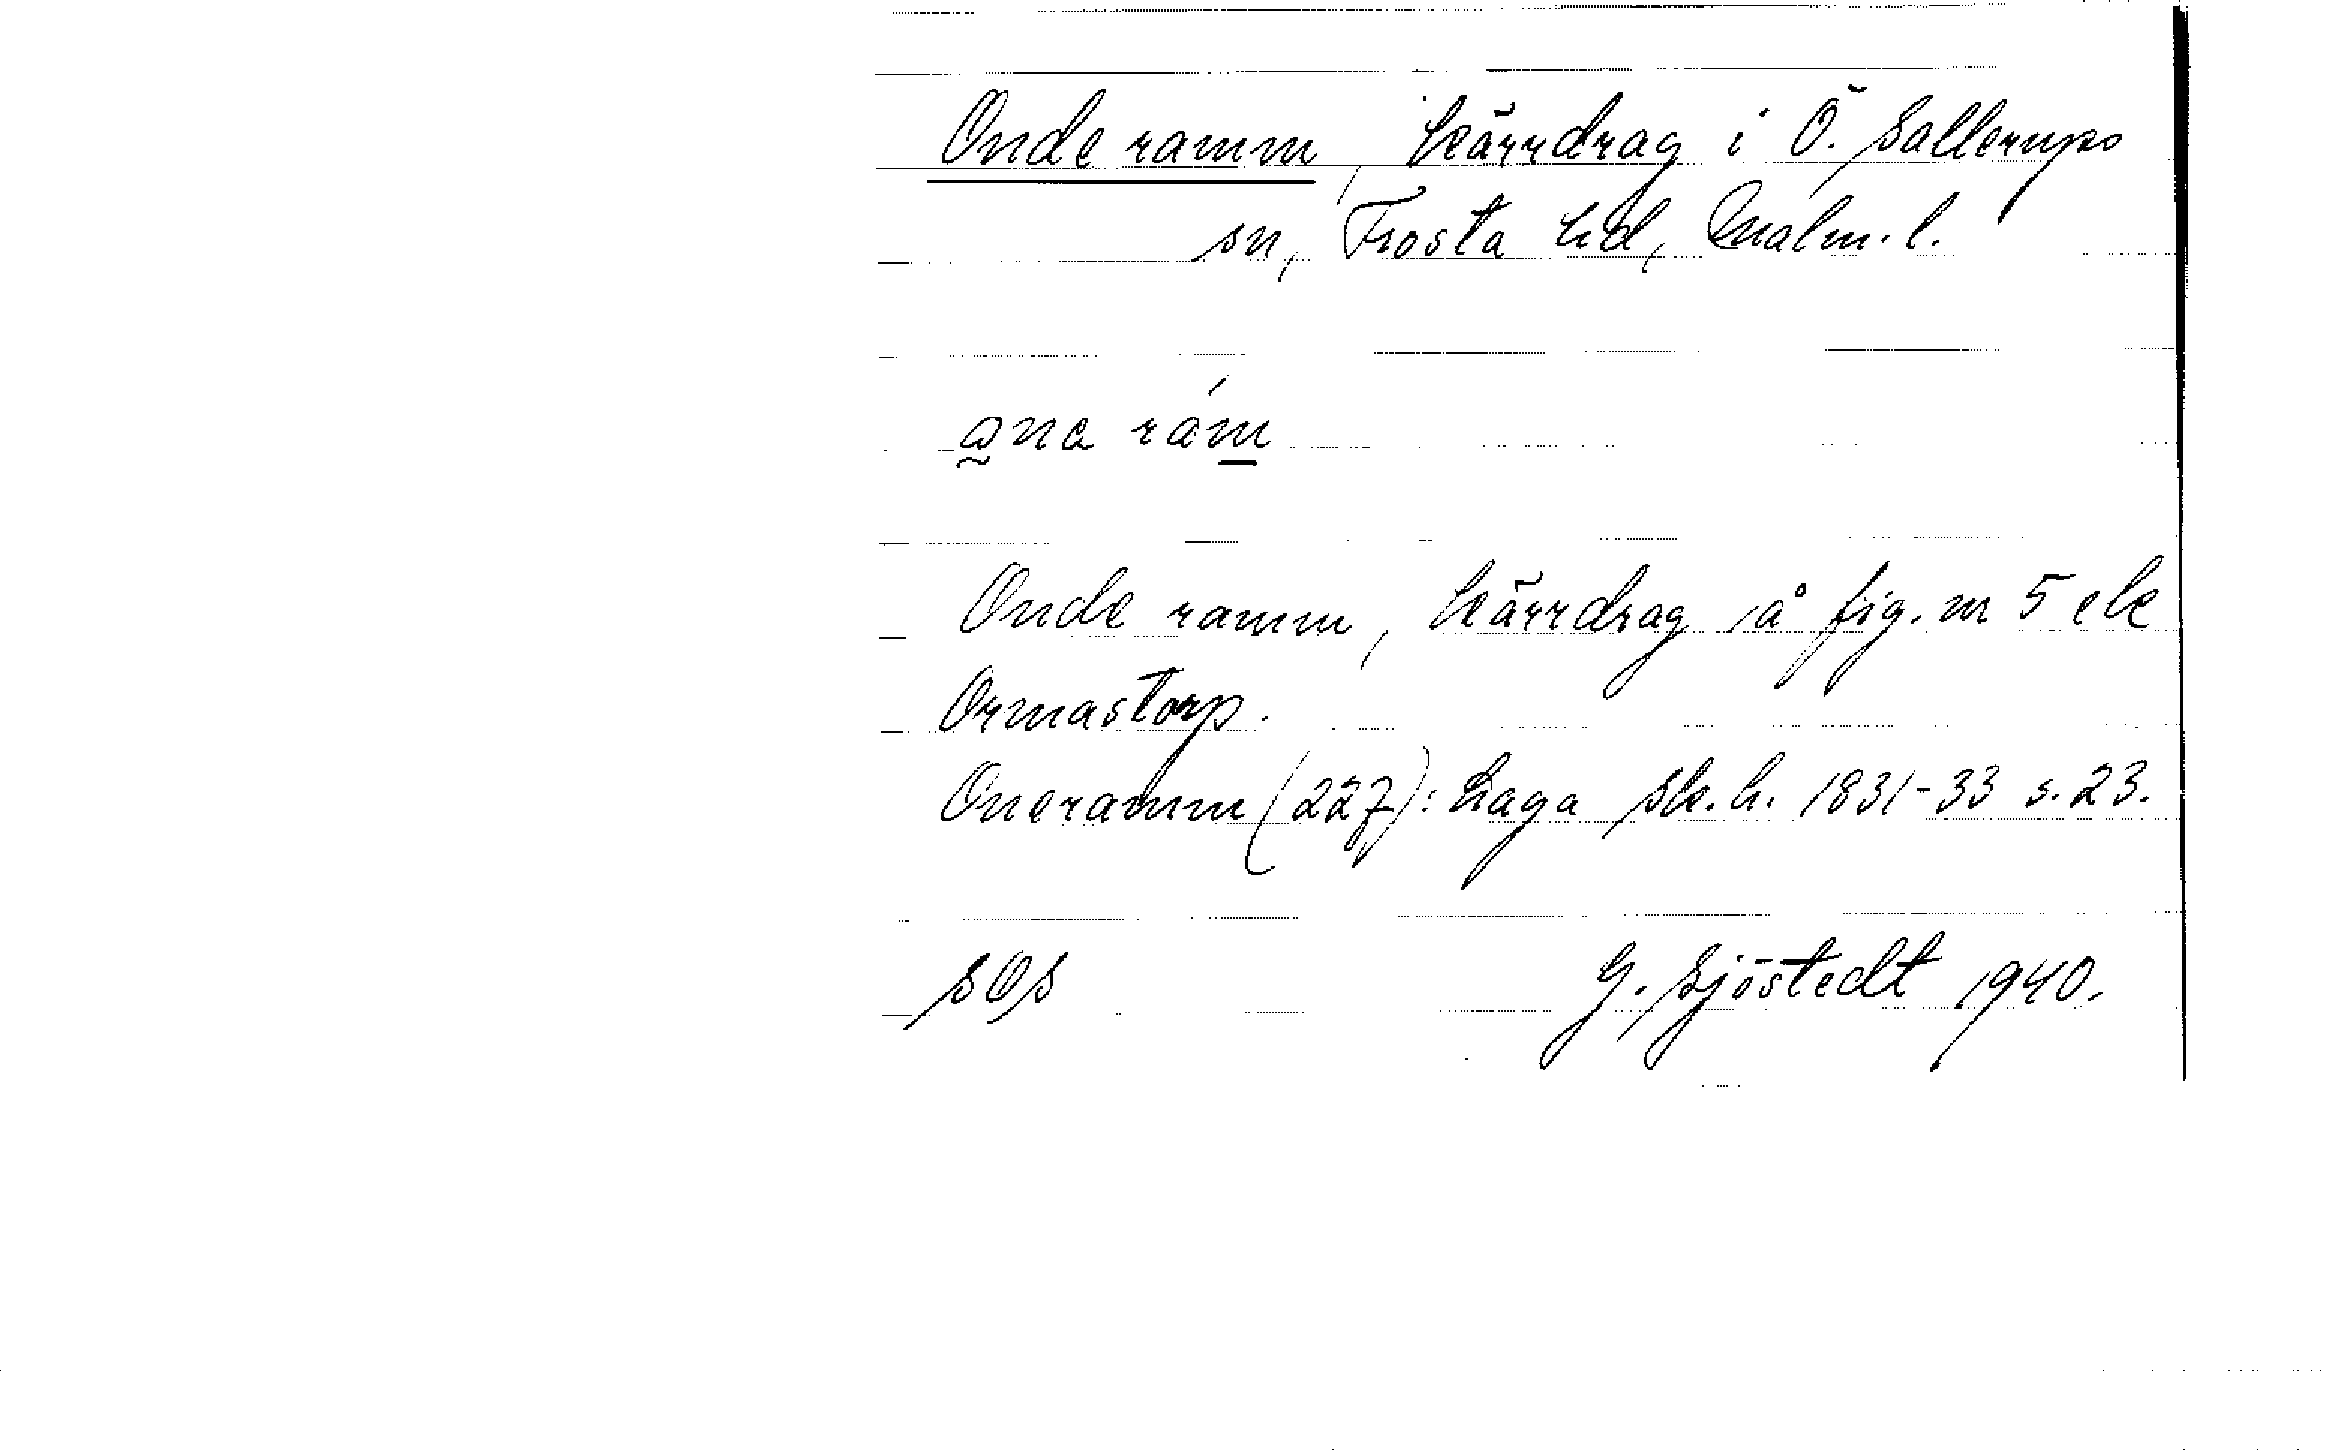 Onde ramm, kärrdrag i Ö. Sallerups
sn, Frosta hd, Malm. l.
ana rám
Onde ramm, kärrdrag å fig. nr 5 ek
Ormastorp.
Oneramm (227): Laga sk. h. 1831-33 s. 23.
SOS G. Sjöstedt 1940.